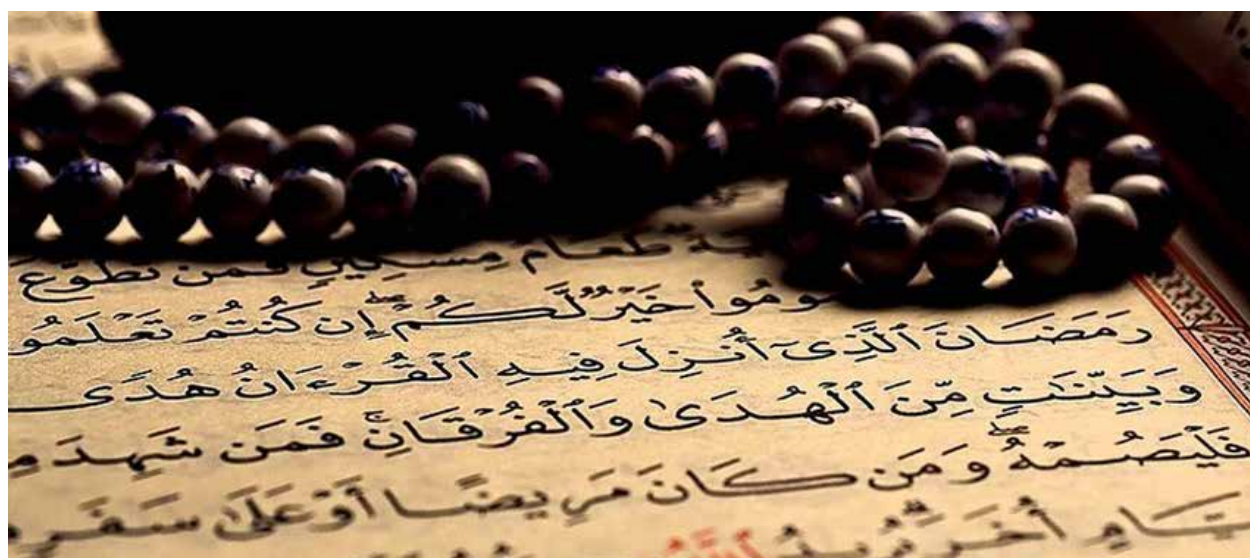 طَعَامُ مِسْكِينٍ فَمَن تَطَوَّعَ
خَيْرٌ لَّكُمْ إِن كُنتُمْ تَعْلَمُو
رَمَضَانَ ٱلَّذِىٓ أُنزِلَ فِيهِ ٱلْقُرْءَانُ هُدًى
وَبَيِّنَٰتٍ مِّنَ ٱلْهُدَىٰ وَٱلْفُرْقَانِ ۚ فَمَن شَهِدَ مِ
فَلْيَصُمْهُ ۖ وَمَن كَانَ مَرِيضًا أَوْ عَلَىٰ سَفَرٍ
يَّامٍ أُخَرَ ۗ يُرِيدُ ٱللَّهُ